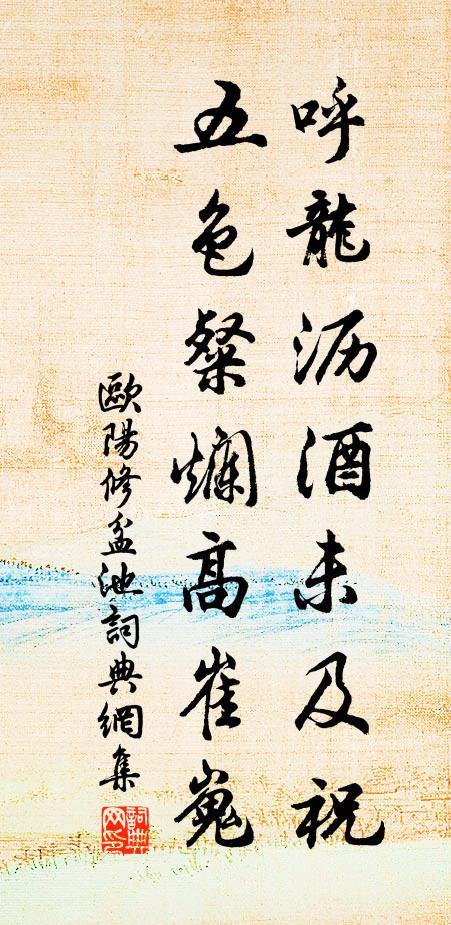 呼龍沥酒未及祝
五色粲爛高崔嵬
歐陽修盆池詞典網集
詞典网印